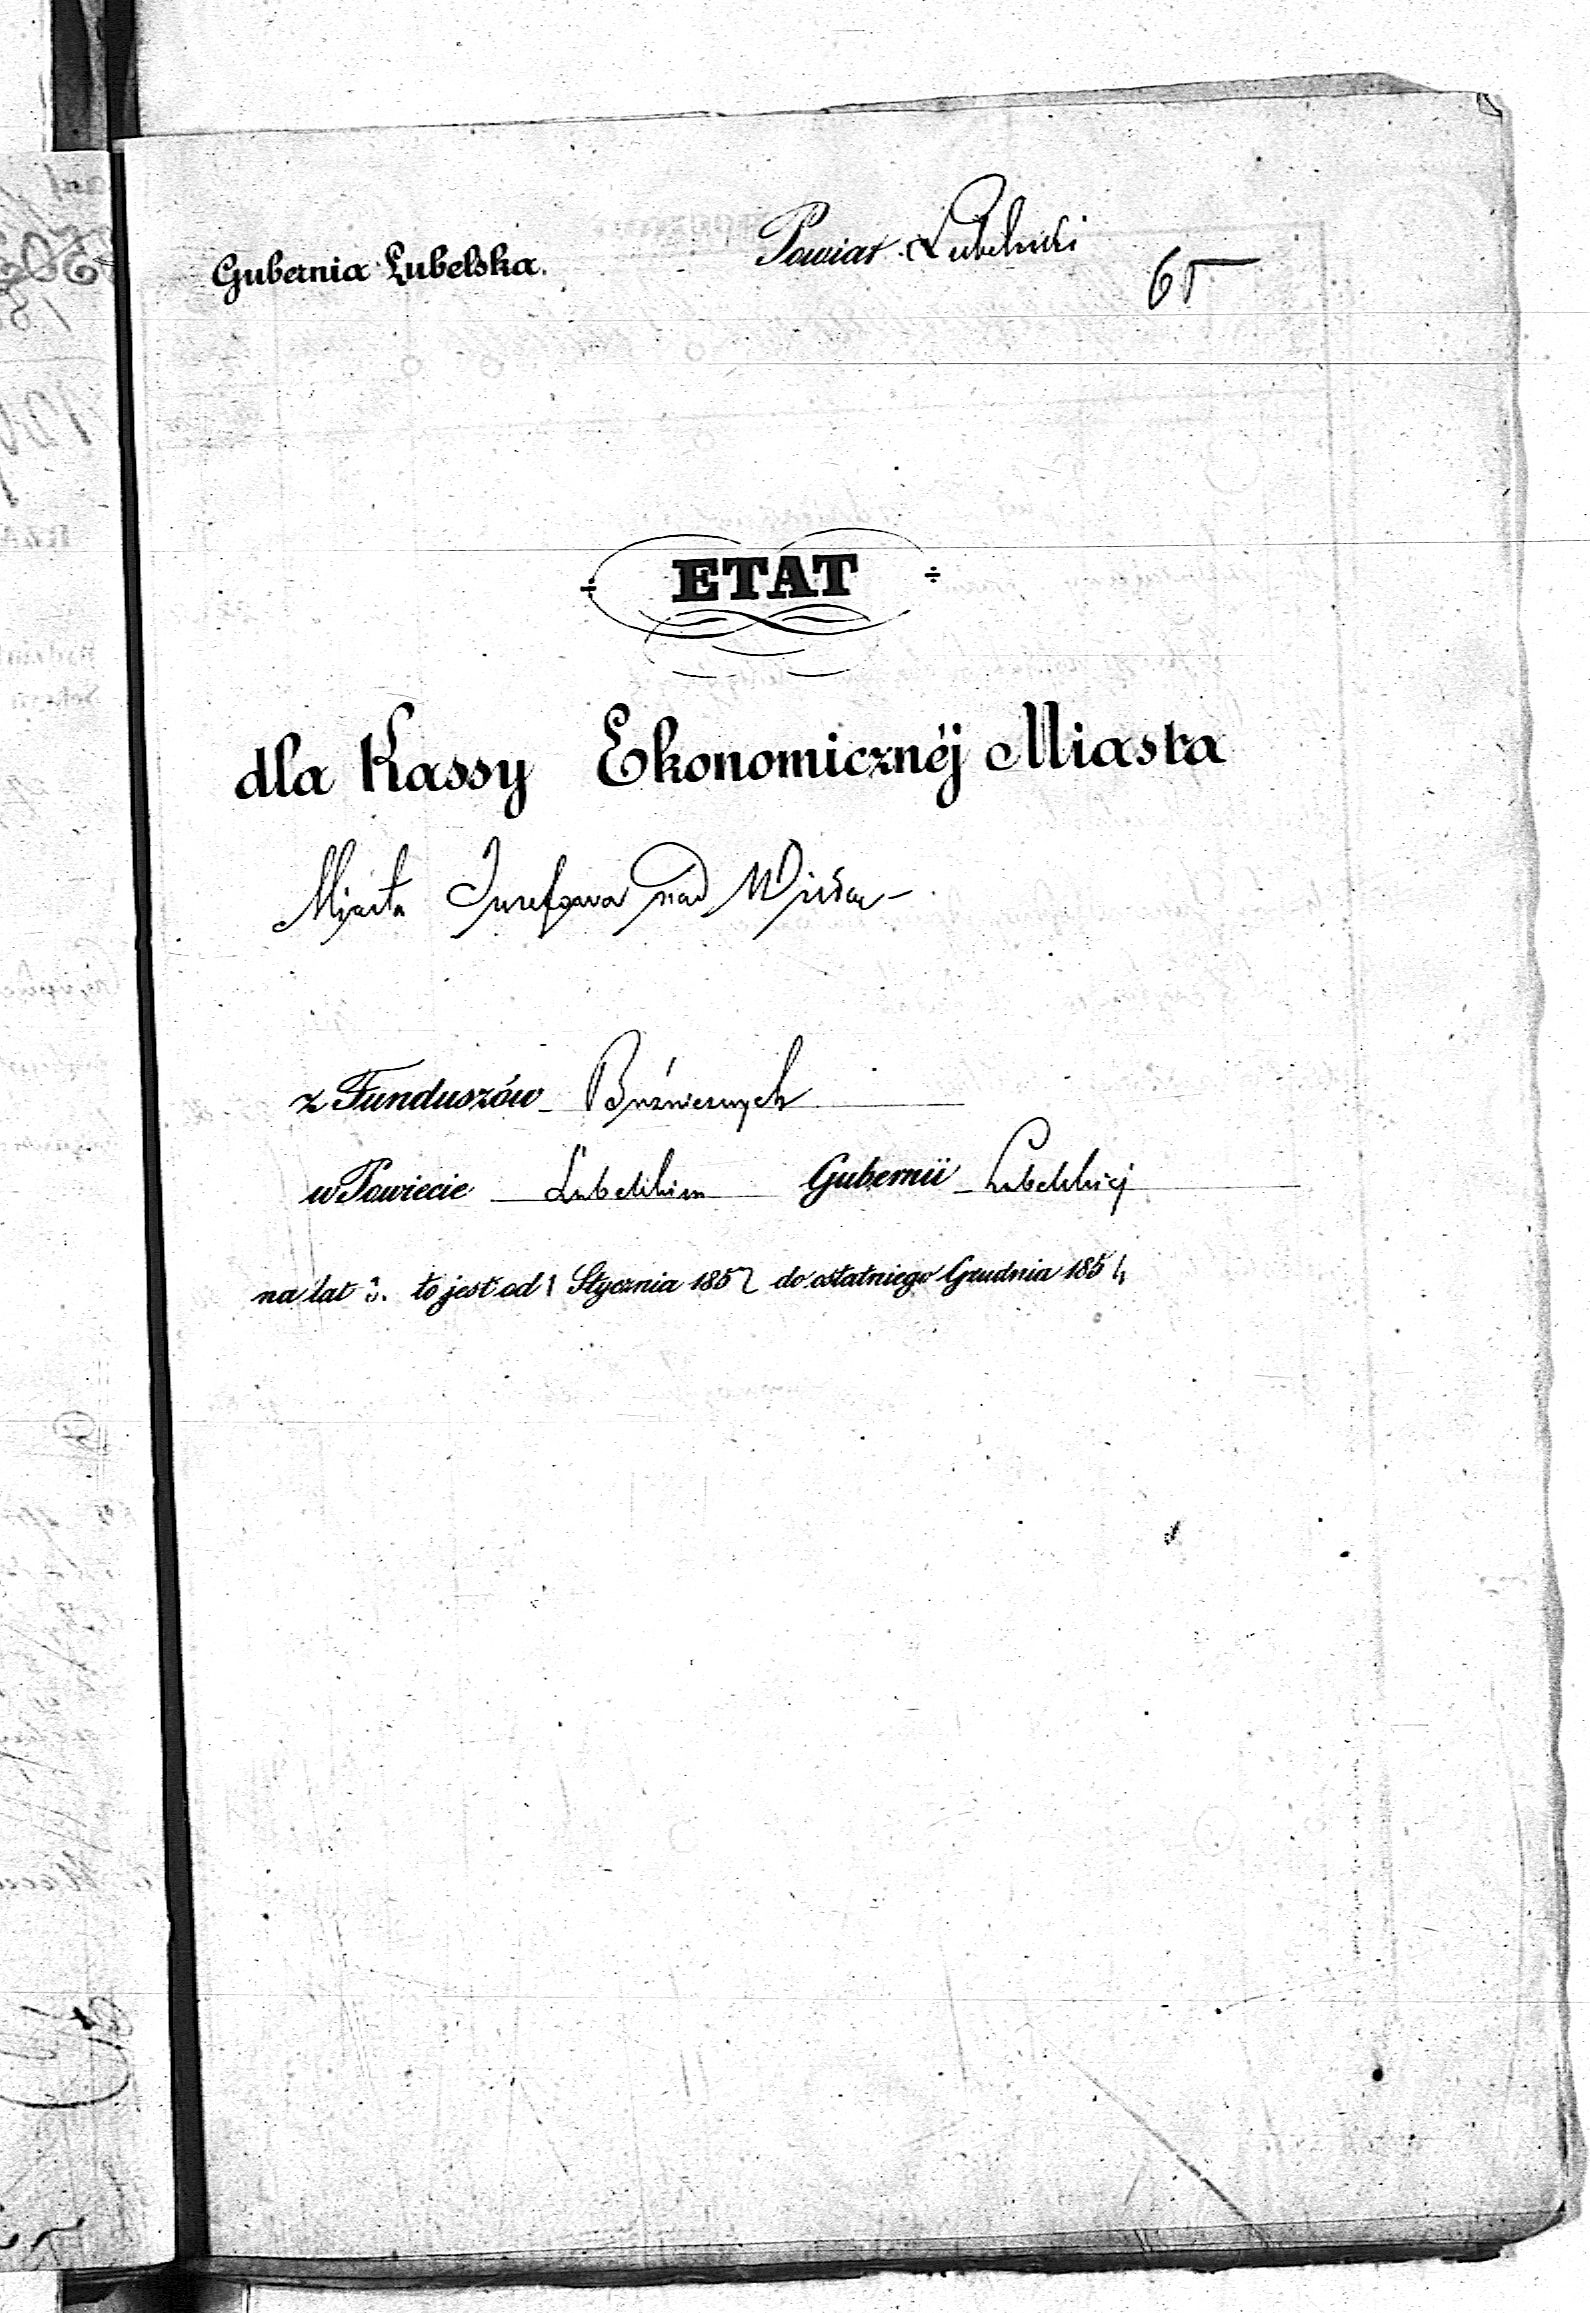 Gubernia Lubelska. Powiat Lubelski
65
ETAT
dla Kassy Ekonomicznéj Miasta
Miasta Jozefowa nad Wisłą
z Funduszów Bóżnicznych
w Powiecie Lubelskim Gubernii Lubelskiej
na lat 3. to jest od 1 Stycznia 1852 do ostatniego Grudnia 1854